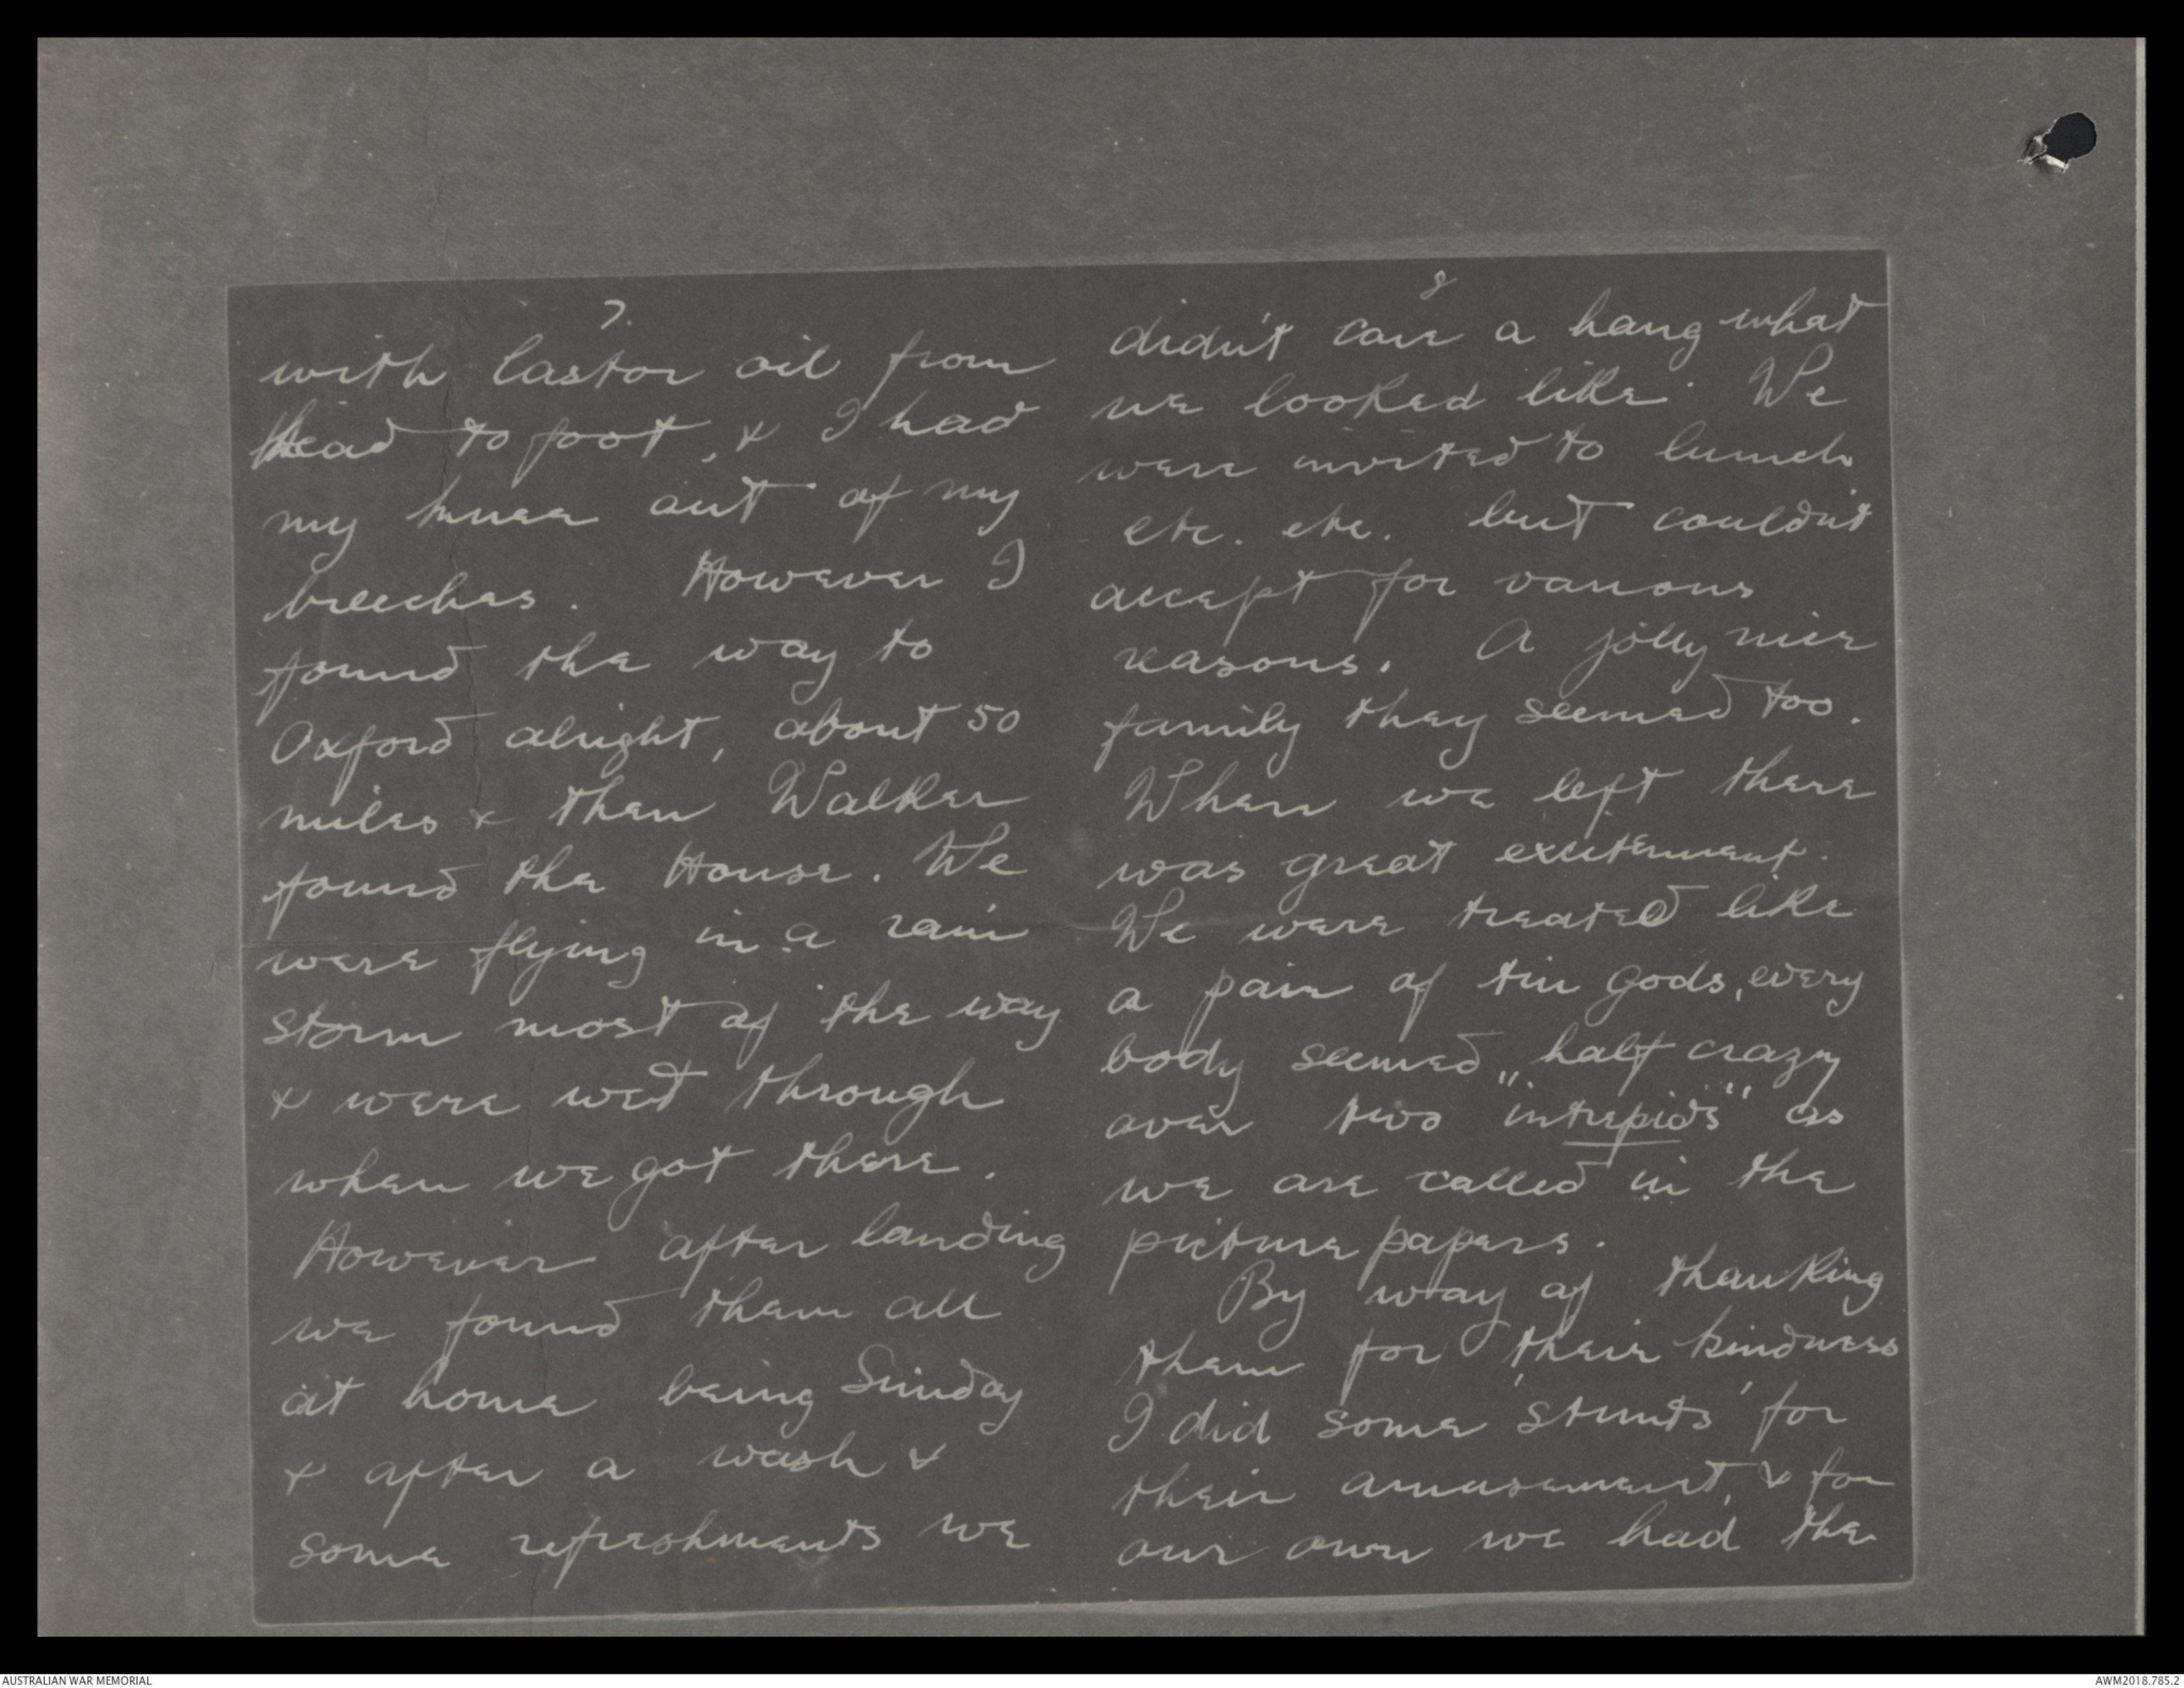 7.
with Castor oil from
head to foot, & I had
my knee out of my
breeches. However I
found the way to
Oxford alright, about 50
miles & then Walker
found the House. We
were flying in a rain
storm most of the way
& were wet through
when we got there.
However after landing
we found them all
at home being Sunday
& after a wash &
some refreshments we
8
didn't care a hang what
we looked like. We
were invited to lunch
etc. etc. but couldn't
accept for various
reasons. A jolly nice
family they seemed too.
When we left there
was great excitement.
We were treated like
a pair of tin gods, every
body seemed half crazy
over two "intrepids" as
we are called in the
picture papers.
By way of thanking
them for their kindness
I did some 'stunts' for
their amusement, & for
our own we had the
AUSTRALIAN WAR MEMORIAL
AWM2018.785.2